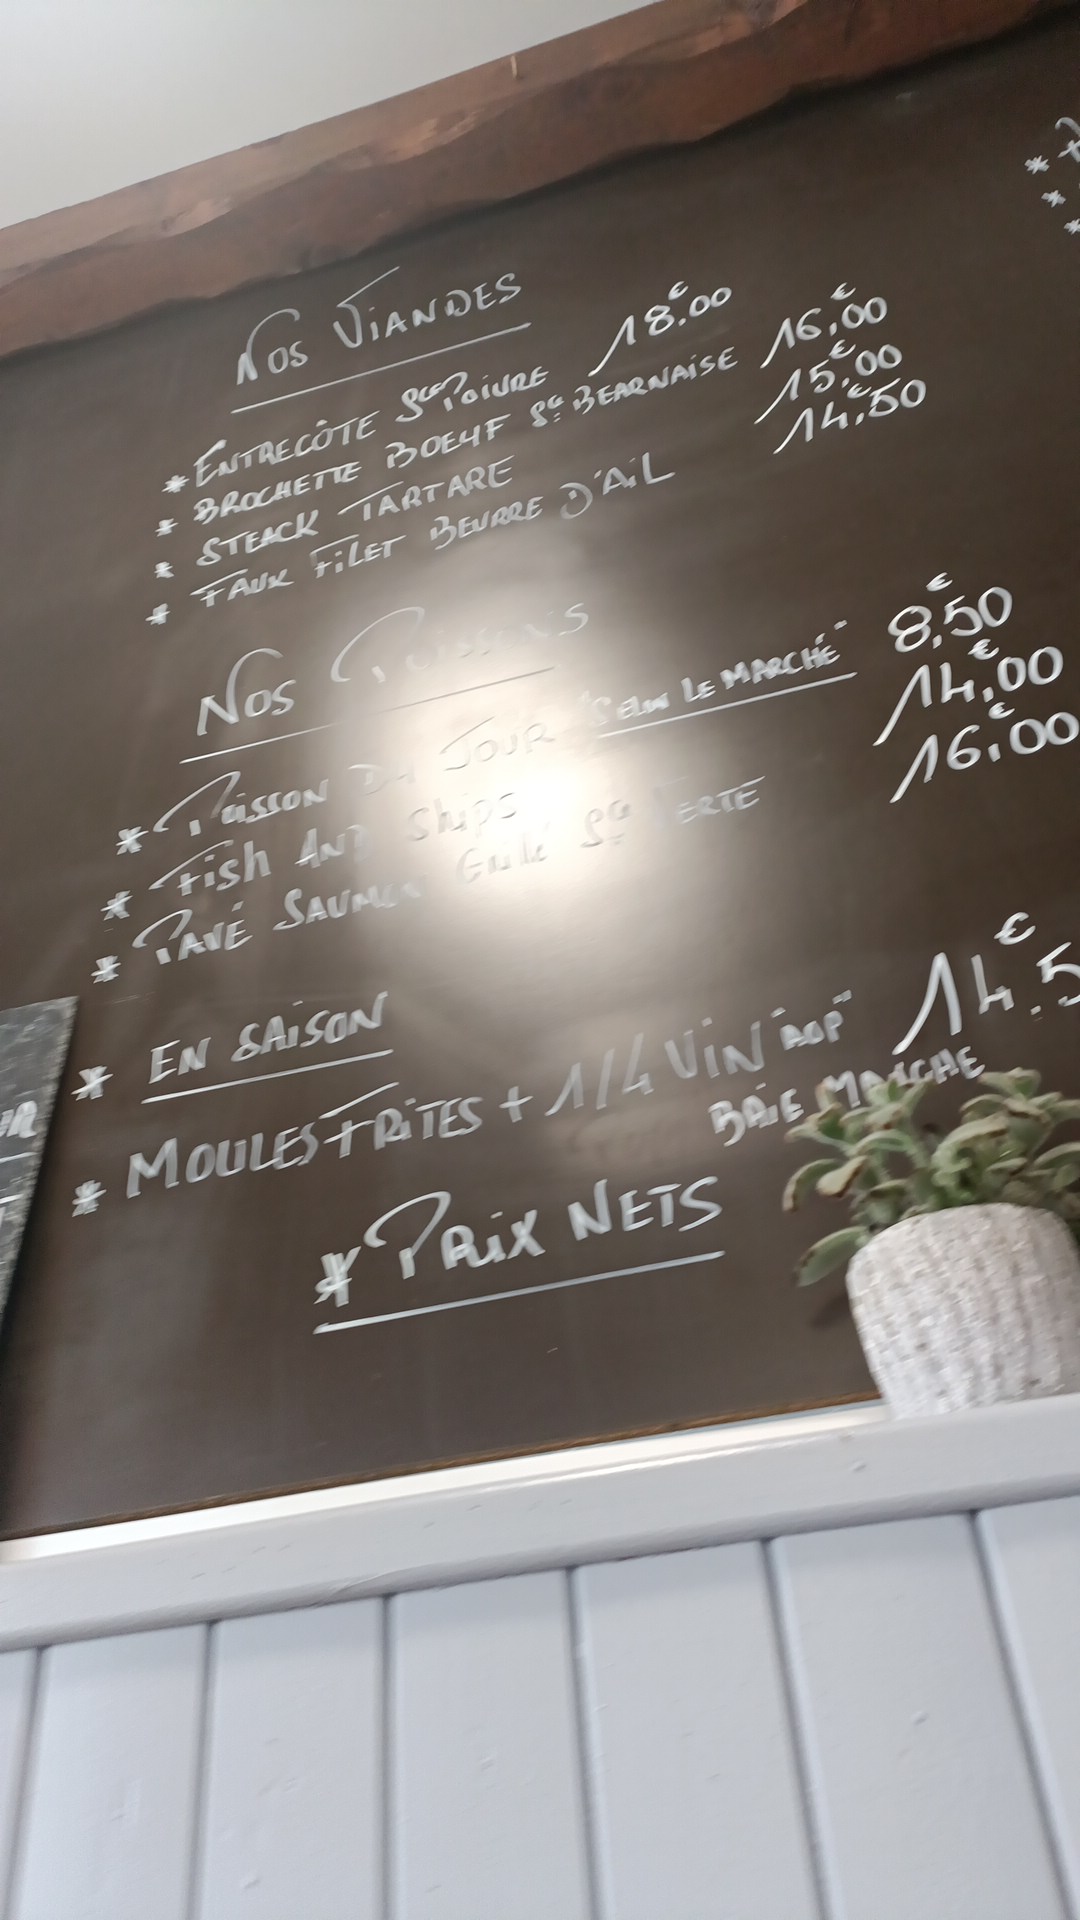 Nos Viandes
* Entrecôte Sce Poivre 18,00 €
* Brochette Boeuf Sce Bearnaise 16,00 €
* Steack Tartare 15,00 €
* Faux Filet Beurre D'Ail 14,50 €
Nos Poissons
* Poisson Du Jour "Selon Le Marché" 8,50 €
* Fish And Ships 14,00 €
* Pavé Saumon Grillé Sce Verte 16,00 €
* En Saison
* Moules Frites + 1/4 Vin "AOP" 14,5 €
Baie
* Prix Nets